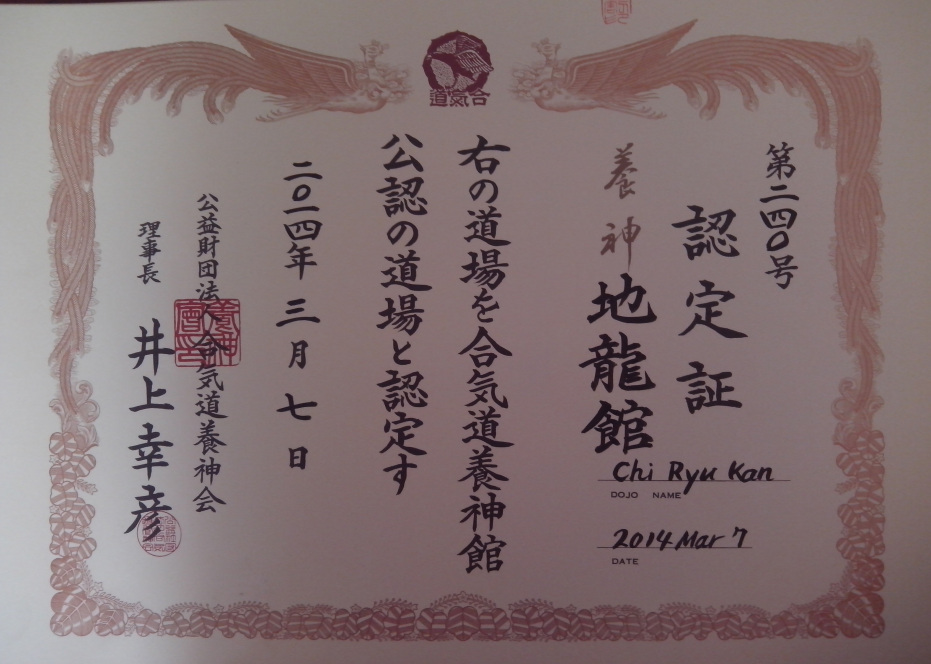 合気道
第二四〇号
認定証
養神
地龍館
Chi Ryu Kan
DOJO NAME
2014 Mar 7
DATE
右の道場を合気道養神館
公認の道場と認定す
二〇一四年三月七日
公益財団法人合気道養神会
理事長 井上幸彦